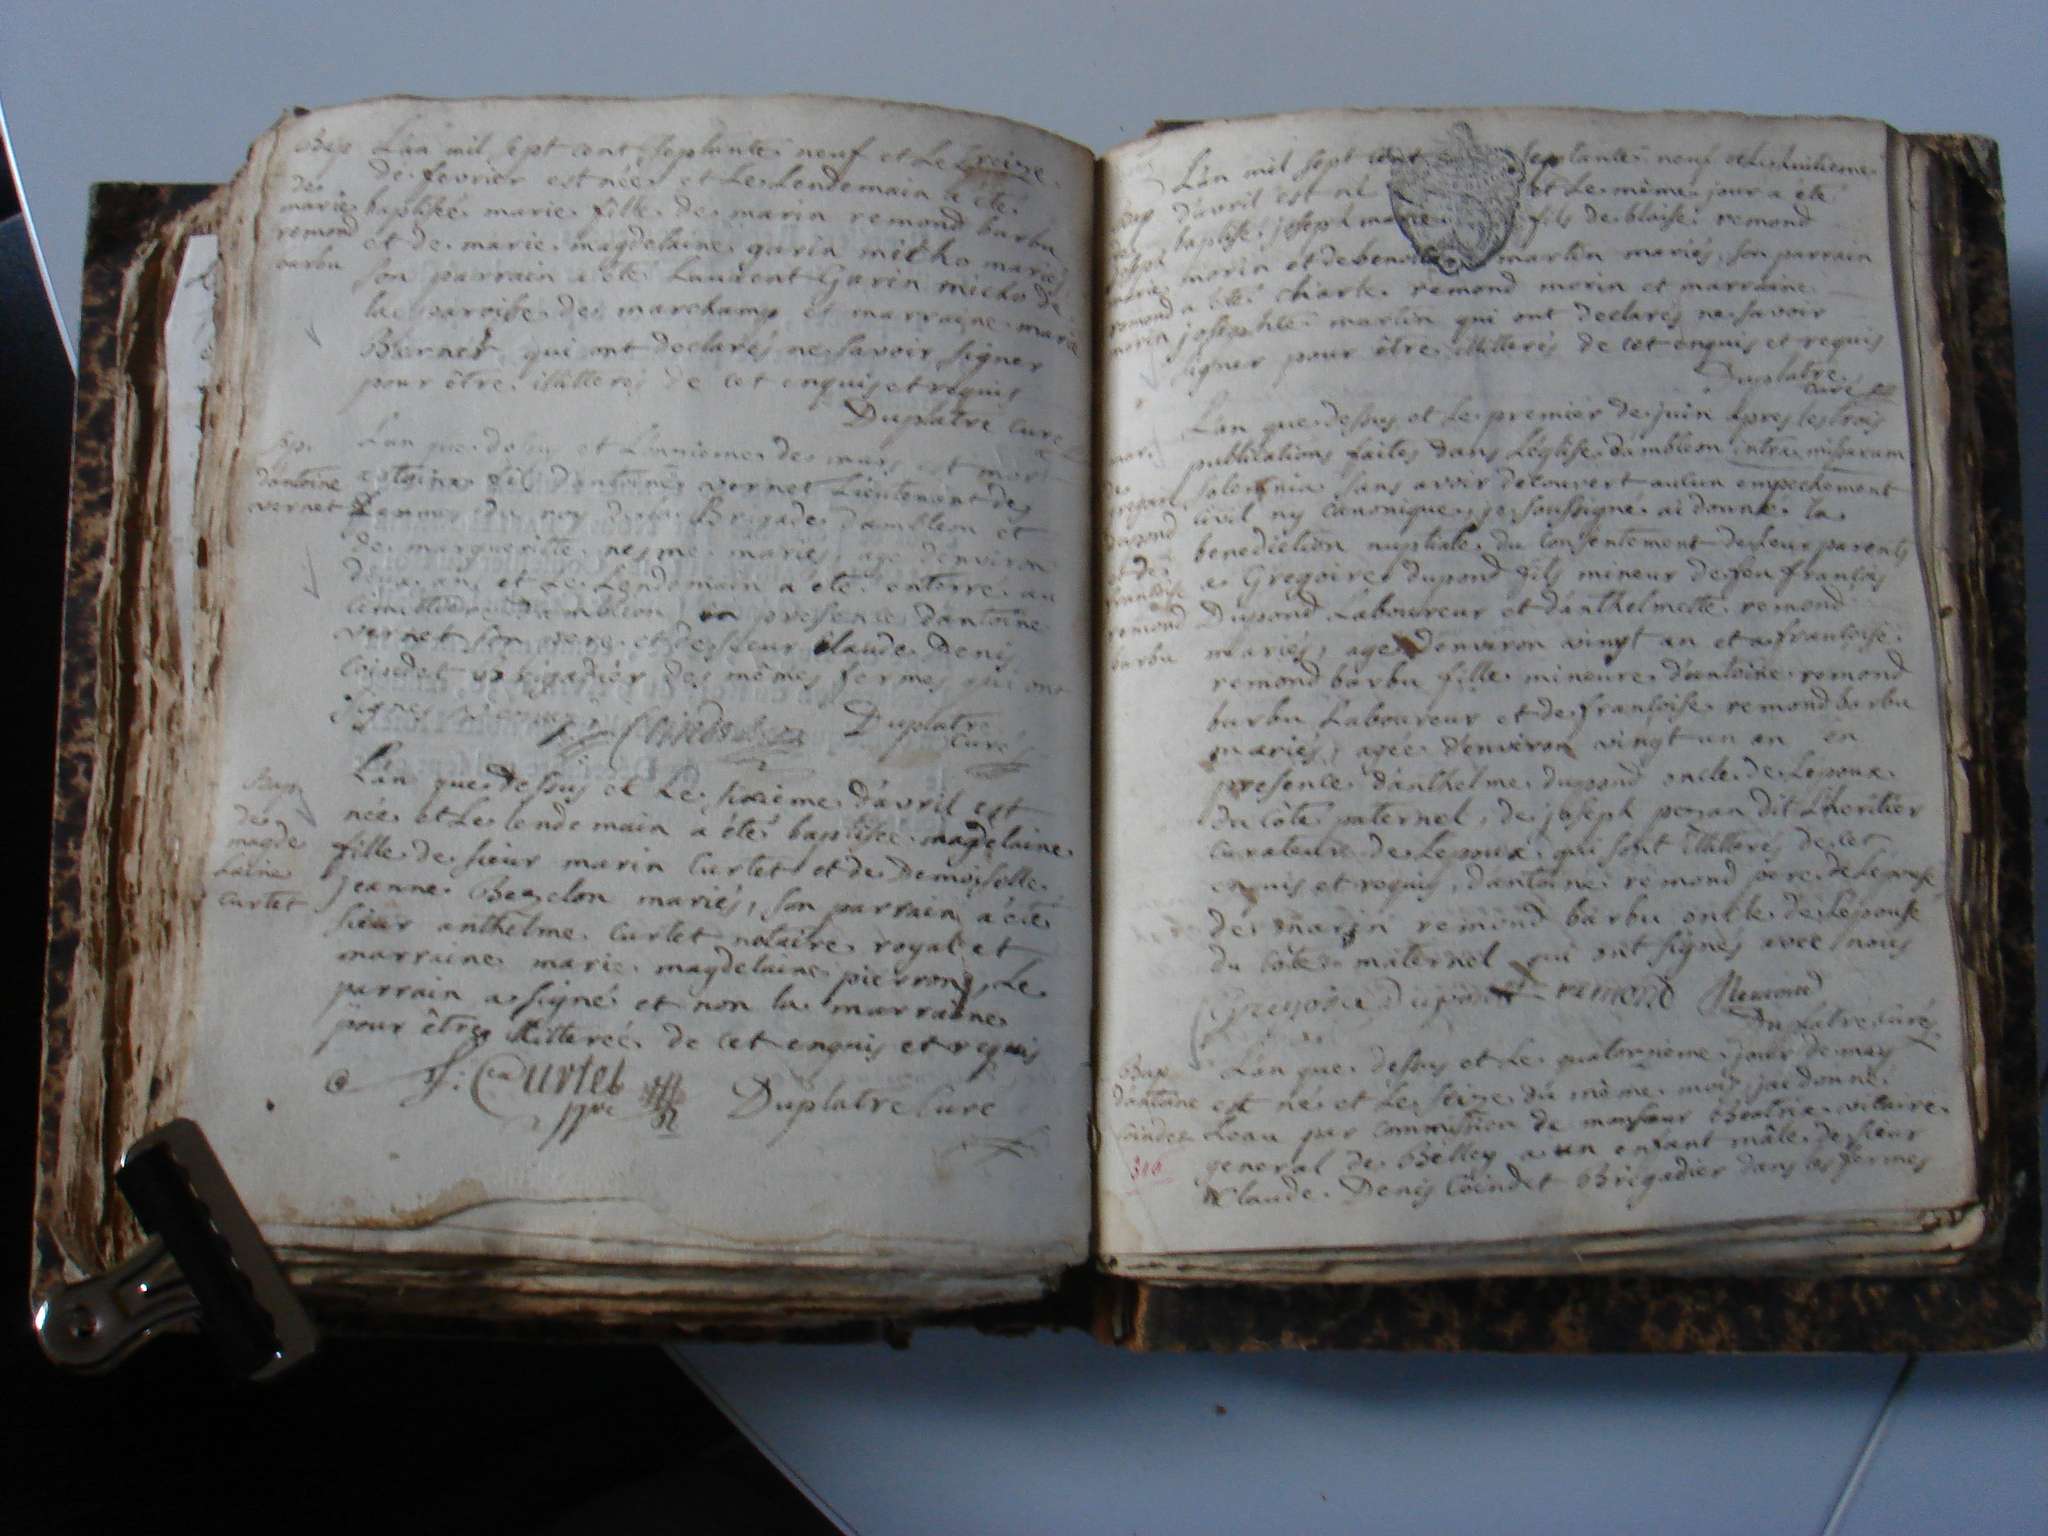 Bap
de
marie
remond
barbu
L'an mil sept cent septante neuf et le treize
de fevrier est née et le lendemain a été
baptisée marie fille de marin remond barbu
et de marie magdelaine garin micho mariés
son parrain a été Laurent Garin micho de
la paroisse de marchamp et marraine marie
qui ont declarés ne savoir signer
pour être illitterés de cet enquis et requis
Duplatre curé
Sep.
d'antoine
vernet
L'an que dessus et l'onzieme de mars est mor
antoine fils d'antoine vernet Lieutenant des
fermes du roy de la Brigade d'ambleon et
de margueritte nesme mariés, age d'environ
deux ans et le Lendemain a été enterré au
cimettiere d'ambleon en presence d'antoine
vernet son pere et de sieur claude Denis
Coindet brigadiér des mêmes fermes qui ont
signés
Coindet
Duplatre
curé
Bap
de
magde
laine
Curtet
L'an que dessus et le sixième d'avril est
née et le lendemain a été baptisée magdelaine
fille de sieur marin Curtet et de Demoiselle
jeanne mariés, son parrain a été
sieur anthelme Curtet notaire royal et
marraine marie magdelaine pierron, Le
parrain a signé et non la marraine
pour être illiterée de cet enquis et requis
Curtet
Duplatre Curé
Bap
de
joseph
marie
remond
morin
L'an mil sept cent septante neuf et le huitieme
d'avril est né et le même jour a été
baptisé joseph marie fils de blaise remond
morin et de benoite martin mariés, son parrain
a été charle remond morin et marraine
josephte martin qui ont declarés ne savoir
signer pour être illitterés de cet enquis et requis
Duplatre
curé
mar.
de
gregoire
dupond
et de
françoise
remond
barbu
L'an que dessus et le premiér de juin apres les trois
publications faites dans L'église d'ambleon intra missarum
solemnia sans avoir decouvert aucun empechement
civil ny canonique, je soussigné ai donné la
benediction nuptiale du consentement de leur parents
a Gregoire dupond fils mineur de feu françois
Dupond Laboureur et d'anthelmette remond
mariés, age d'environ vingt an et a françoise
remond barbu fille mineure d'antoine remond
barbu Laboureur et de françoise remond barbu
mariés, agée d'environ vingt un an en
presence d'anthelme dupond oncle de L'epoux
du côté paternel, de joseph dit L'heritiér
curateur de L'epoux qui sont illiterés de cet
enquis et requis, d'antoine remond pere de L'epouse
de marin remond barbu oncle de L'épouse
du côté maternel qui ont signés avec nous
Gregoire dupond remond Remond
Duplatre curé
Bap
d'antoine
Coindet
306
L'an que dessus et le quatorzieme jour de may
est né et le seize du même mois j'ai donné
L'eau par commission de monsieur vicaire
general de Belley a un enfant mâle de sieur
Claude Denis Coindet Brigadiér dans les fermes